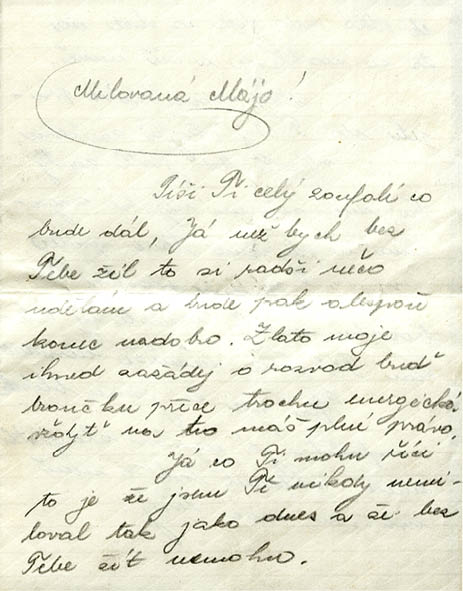 Milovaná Májo!
Píši Ti celý zoufalí co
bude dál, Já než bych bez
Tebe žil to si radši něco
udělám a bude pak alespoň
konec nadobro. Zlato moje
ihned zažádej o rozvod buď
troučku přece trochu energická,
vždyť na to máš plné právo
Já co Ti mohu říci
to je že jsem Tě nikdy nemi-
loval tak jako dnes a že bez
Tebe žít nemohu.